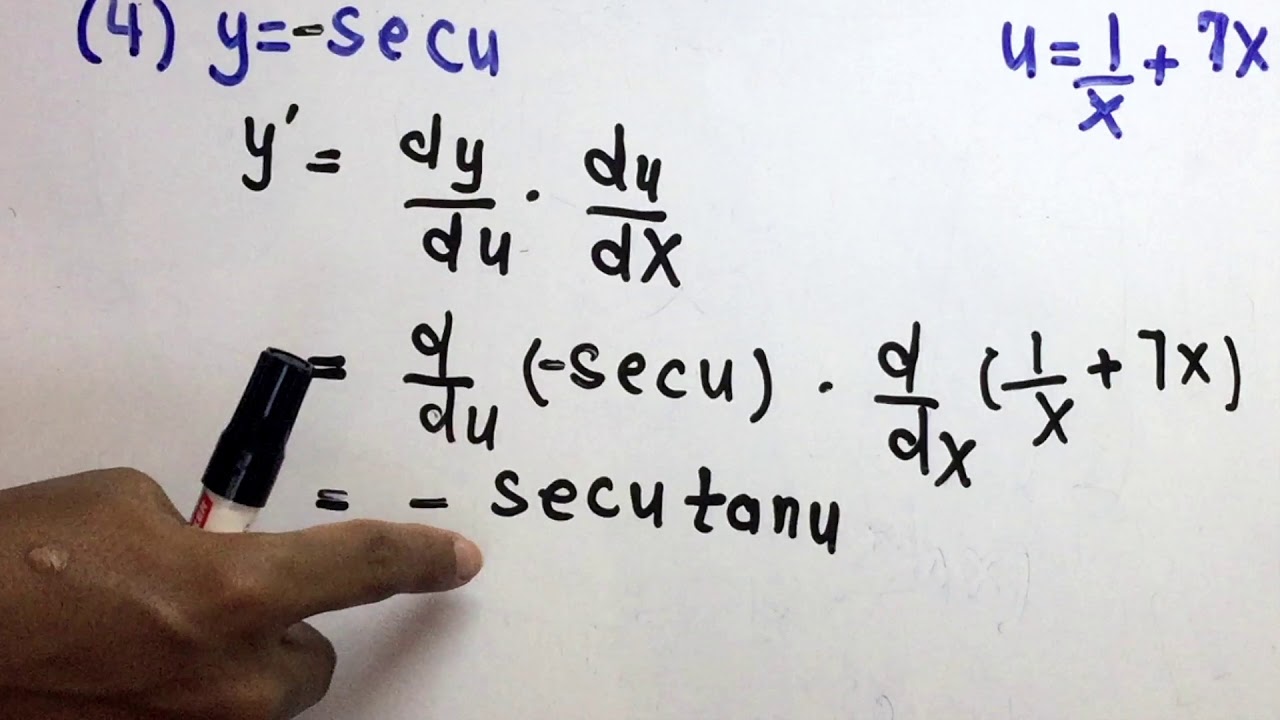 (4) y=-secu u=1/x + 7x
y' = dy/du · du/dx
= d/du (-secu) · d/dx (1/x + 7x)
= - secu tanu